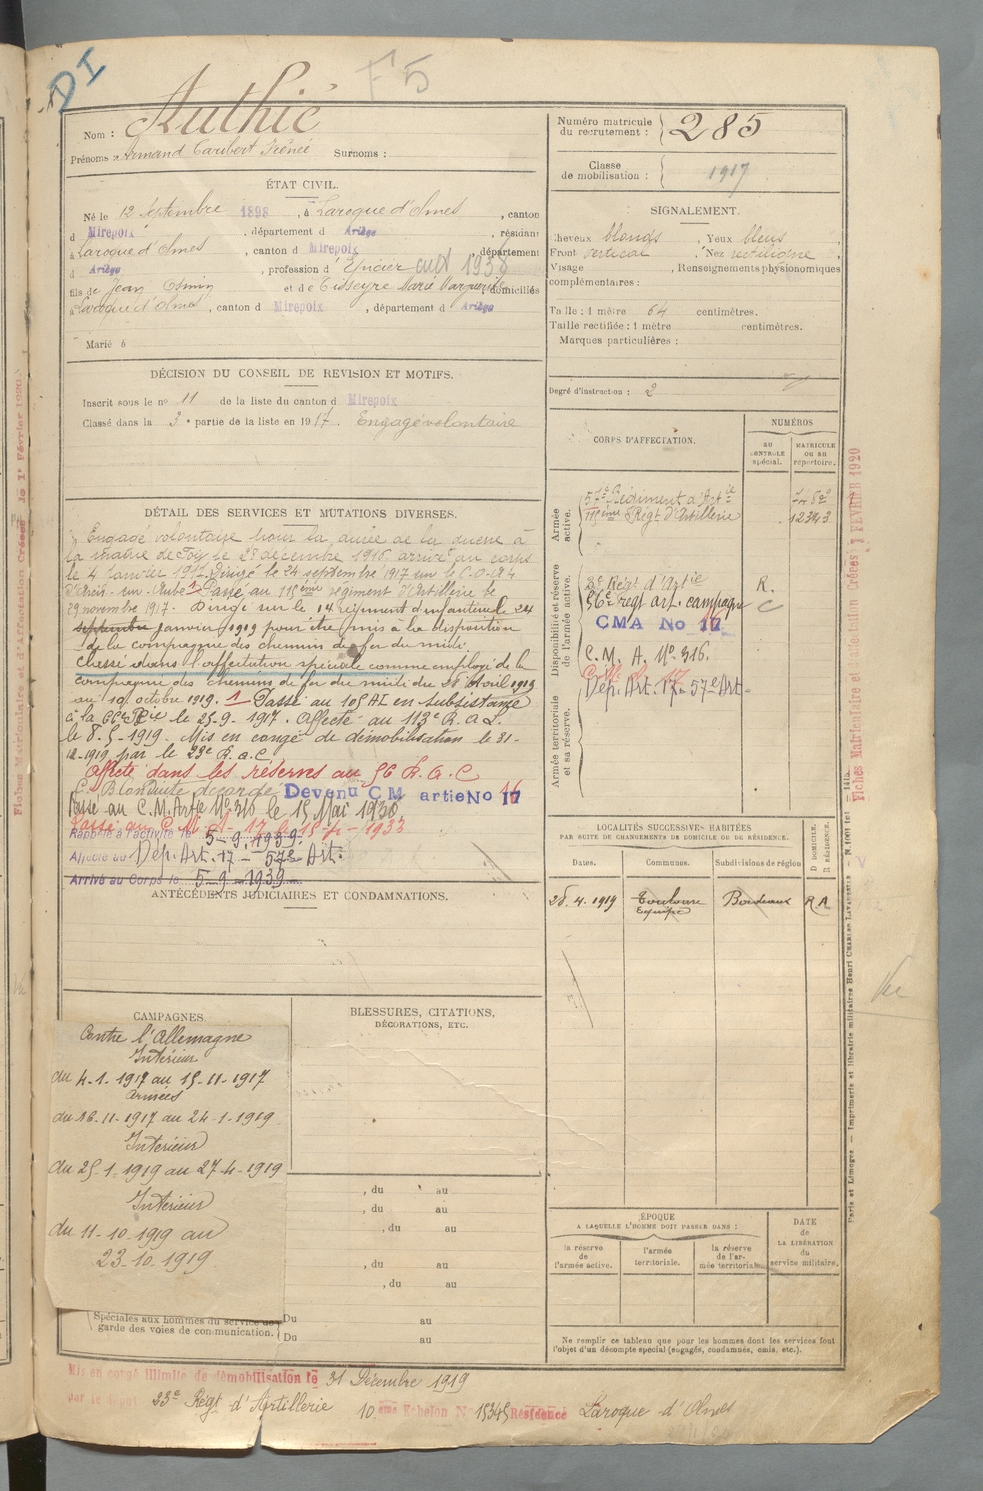 DI
F5
Nom : Authié
Prénoms : Armand Caribert Irénée Surnoms :
ÉTAT CIVIL.
Né le 12 septembre 1898, à Laroque d'Olmes, canton
d Mirepoix, département d Ariège, résidant
à Laroque d'Olmes, canton d Mirepoix, département
d Ariège, profession d'Épicier août 1938
fils de Jean Osmin et de Tisseyre Marie Marguerite, domiciliés
à Laroque d'Olmes, canton d Mirepoix, département d Ariège
Marié à
DÉCISION DU CONSEIL DE REVISION ET MOTIFS.
Inscrit sous le no 11 de la liste du canton d Mirepoix
Classé dans la 3e partie de la liste en 1917. Engagé volontaire
DÉTAIL DES SERVICES ET MUTATIONS DIVERSES.
Engagé volontaire pour la durée de la guerre à
la mairie de Foix le 28 décembre 1916 arrivé au corps
le 4 Janvier 1917. Dirigé le 24 septembre 1917 sur le C.O.A.4
d'Arcis-sur-Aube 1 Passé au 115ème régiment d'Artillerie le
29 novembre 1917. Dirigé sur le 14 régiment d'infanterie le 24
septembre janvier 1919 pour être mis à la disposition
de la compagnie des chemins de fer du midi.
Classé dans l'affectation spéciale comme employé de la
compagnie des chemins de fer du midi du 28 Avril 1919
au 10 octobre 1919. 1 Passé au 105 AL en subsistance
à la 66e Bie le 25-9-1917. Affecté au 113e R.A.L.
le 8-5-1919. Mis en congé de démobilisation le 31-
12-1919 par le 23e R.a.C
Affecté dans les réserves au 56 R.A.C
C. Bl. Conduite accordé Devenu CM artie No 17
Passé au C.M.Artie No 316 le 15 Mai 1930
Passé au C. M. A. 17 le 15-4-1933
Rappelé à l'activité le 5-9-1939
Affecté au Dép. Art. 17 - 57e Art.
Arrivé au Corps le 5-9-1939
ANTÉCÉDENTS JUDICIAIRES ET CONDAMNATIONS.
CAMPAGNES.
Contre l'Allemagne
Intérieur
du 4-1-1917 au 15-11-1917
Armées
du 16-11-1917 au 24-1-1919
Intérieur
du 25-1-1919 au 27-4-1919
Intérieur
du 11-10-1919 au
23-10-1919
Spéciales aux hommes du service de
garde des voies de communication.
Du au
Du au
BLESSURES, CITATIONS,
DÉCORATIONS, ETC.
, du au
, du au
, du au
, du au
, du au
Numéro matricule
du recrutement : 285
Classe
de mobilisation : 1917
SIGNALEMENT.
Cheveux blonds, Yeux bleus
Front vertical, Nez rectiligne
Visage , Renseignements physionomiques
complémentaires :
Taille : 1 mètre 64 centimètres.
Taille rectifiée : 1 mètre centimètres.
Marques particulières :
Degré d'instruction : 2
CORPS D'AFFECTATION.
NUMÉROS
AU CONTROLE spécial.
MATRICULE OU AU répertoire.
Armée active.
57e Régiment d'Artie
115ème Régt d'Artillerie 12343
Disponibilité et réserve de l'armée active.
2e Régt d'Artie R.
56e regt art. campagne C
CMA No 17
C. M. A. No 316.
Dép. Art. 17 - 57e Art-
Armée territoriale et sa réserve.
LOCALITÉS SUCCESSIVES HABITÉES
PAR SUITE DE CHANGEMENTS DE DOMICILE OU DE RÉSIDENCE.
Dates. Communes. Subdivisions de région
D DOMICILE. R RÉSIDENCE.
28.4.1919 Toulouse Bordeaux R A
Equipe
ÉPOQUE
A LAQUELLE L'HOMME DOIT PASSER DANS :
la réserve de l'armée active.
l'armée territoriale.
la réserve de l'armée territoriale.
DATE de LA LIBÉRATION du service militaire.
Ne remplir ce tableau que pour les hommes dont les services font
l'objet d'un décompte spécial (engagés, condamnés, omis, etc.).
Paris et Limoges — Imprimerie et librairie militaires Henri CHARLES-LAVAUZELLE
Mis en congé illimité de démobilisation le 31 Décembre 1919
par le dépôt 23e Régt d'Artillerie 10 ème Echelon No 15345 Résidence Laroque d'Olmes